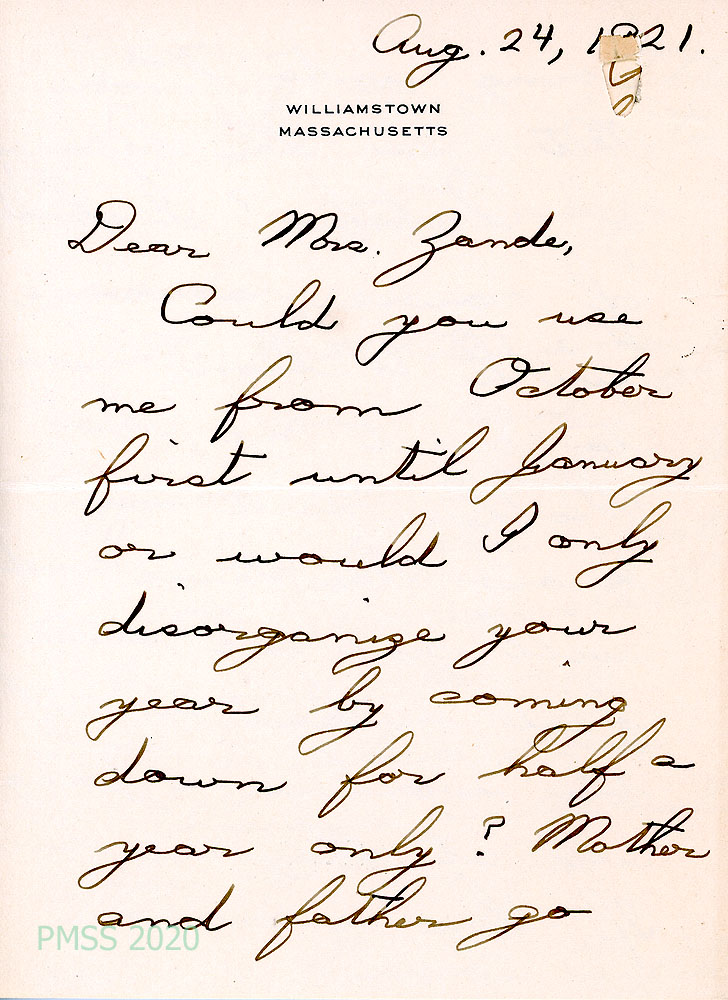 Aug. 24, 1921.
WILLIAMSTOWN
MASSACHUSETTS
Dear Mrs. Zande,
Could you use
me from October
first until January
or would I only
disorganize your
year by coming
down for half a
year only? Mother
and father go
PMSS 2020